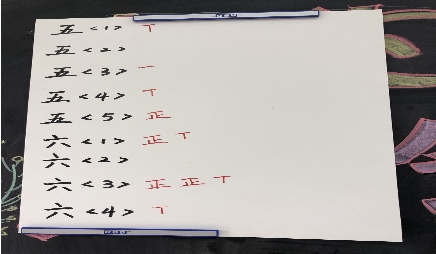 五 <1> T
五 <2>
五 <3> 一
五 <4> T
五 <5> 正
六 <1> 正 T
六 <2>
六 <3> 正 正 T
六 <4> T